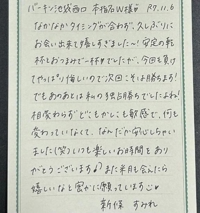 バーキン池袋西口 本指名W様♡ R7.11.6
なかなかタイミングが合わず、久しぶりに
お会い出来て嬉しすぎました〜! 安定の乾
杯もおつまみで一杯♡でしたが、今回も負け
てやっぱり悔しいので次回こそは勝ちます!
でもあのあとは私の独占勝ちでしたよね!
相変わらずどこもかしこも敏感で、何も
変わっていなくて、なんだか安心しちゃい
ました(笑) いつも楽しいお時間をあり
がとうございます♪ また来月も会えたら
嬉しいなと密かに願っていまーす♡
新保 すみれ